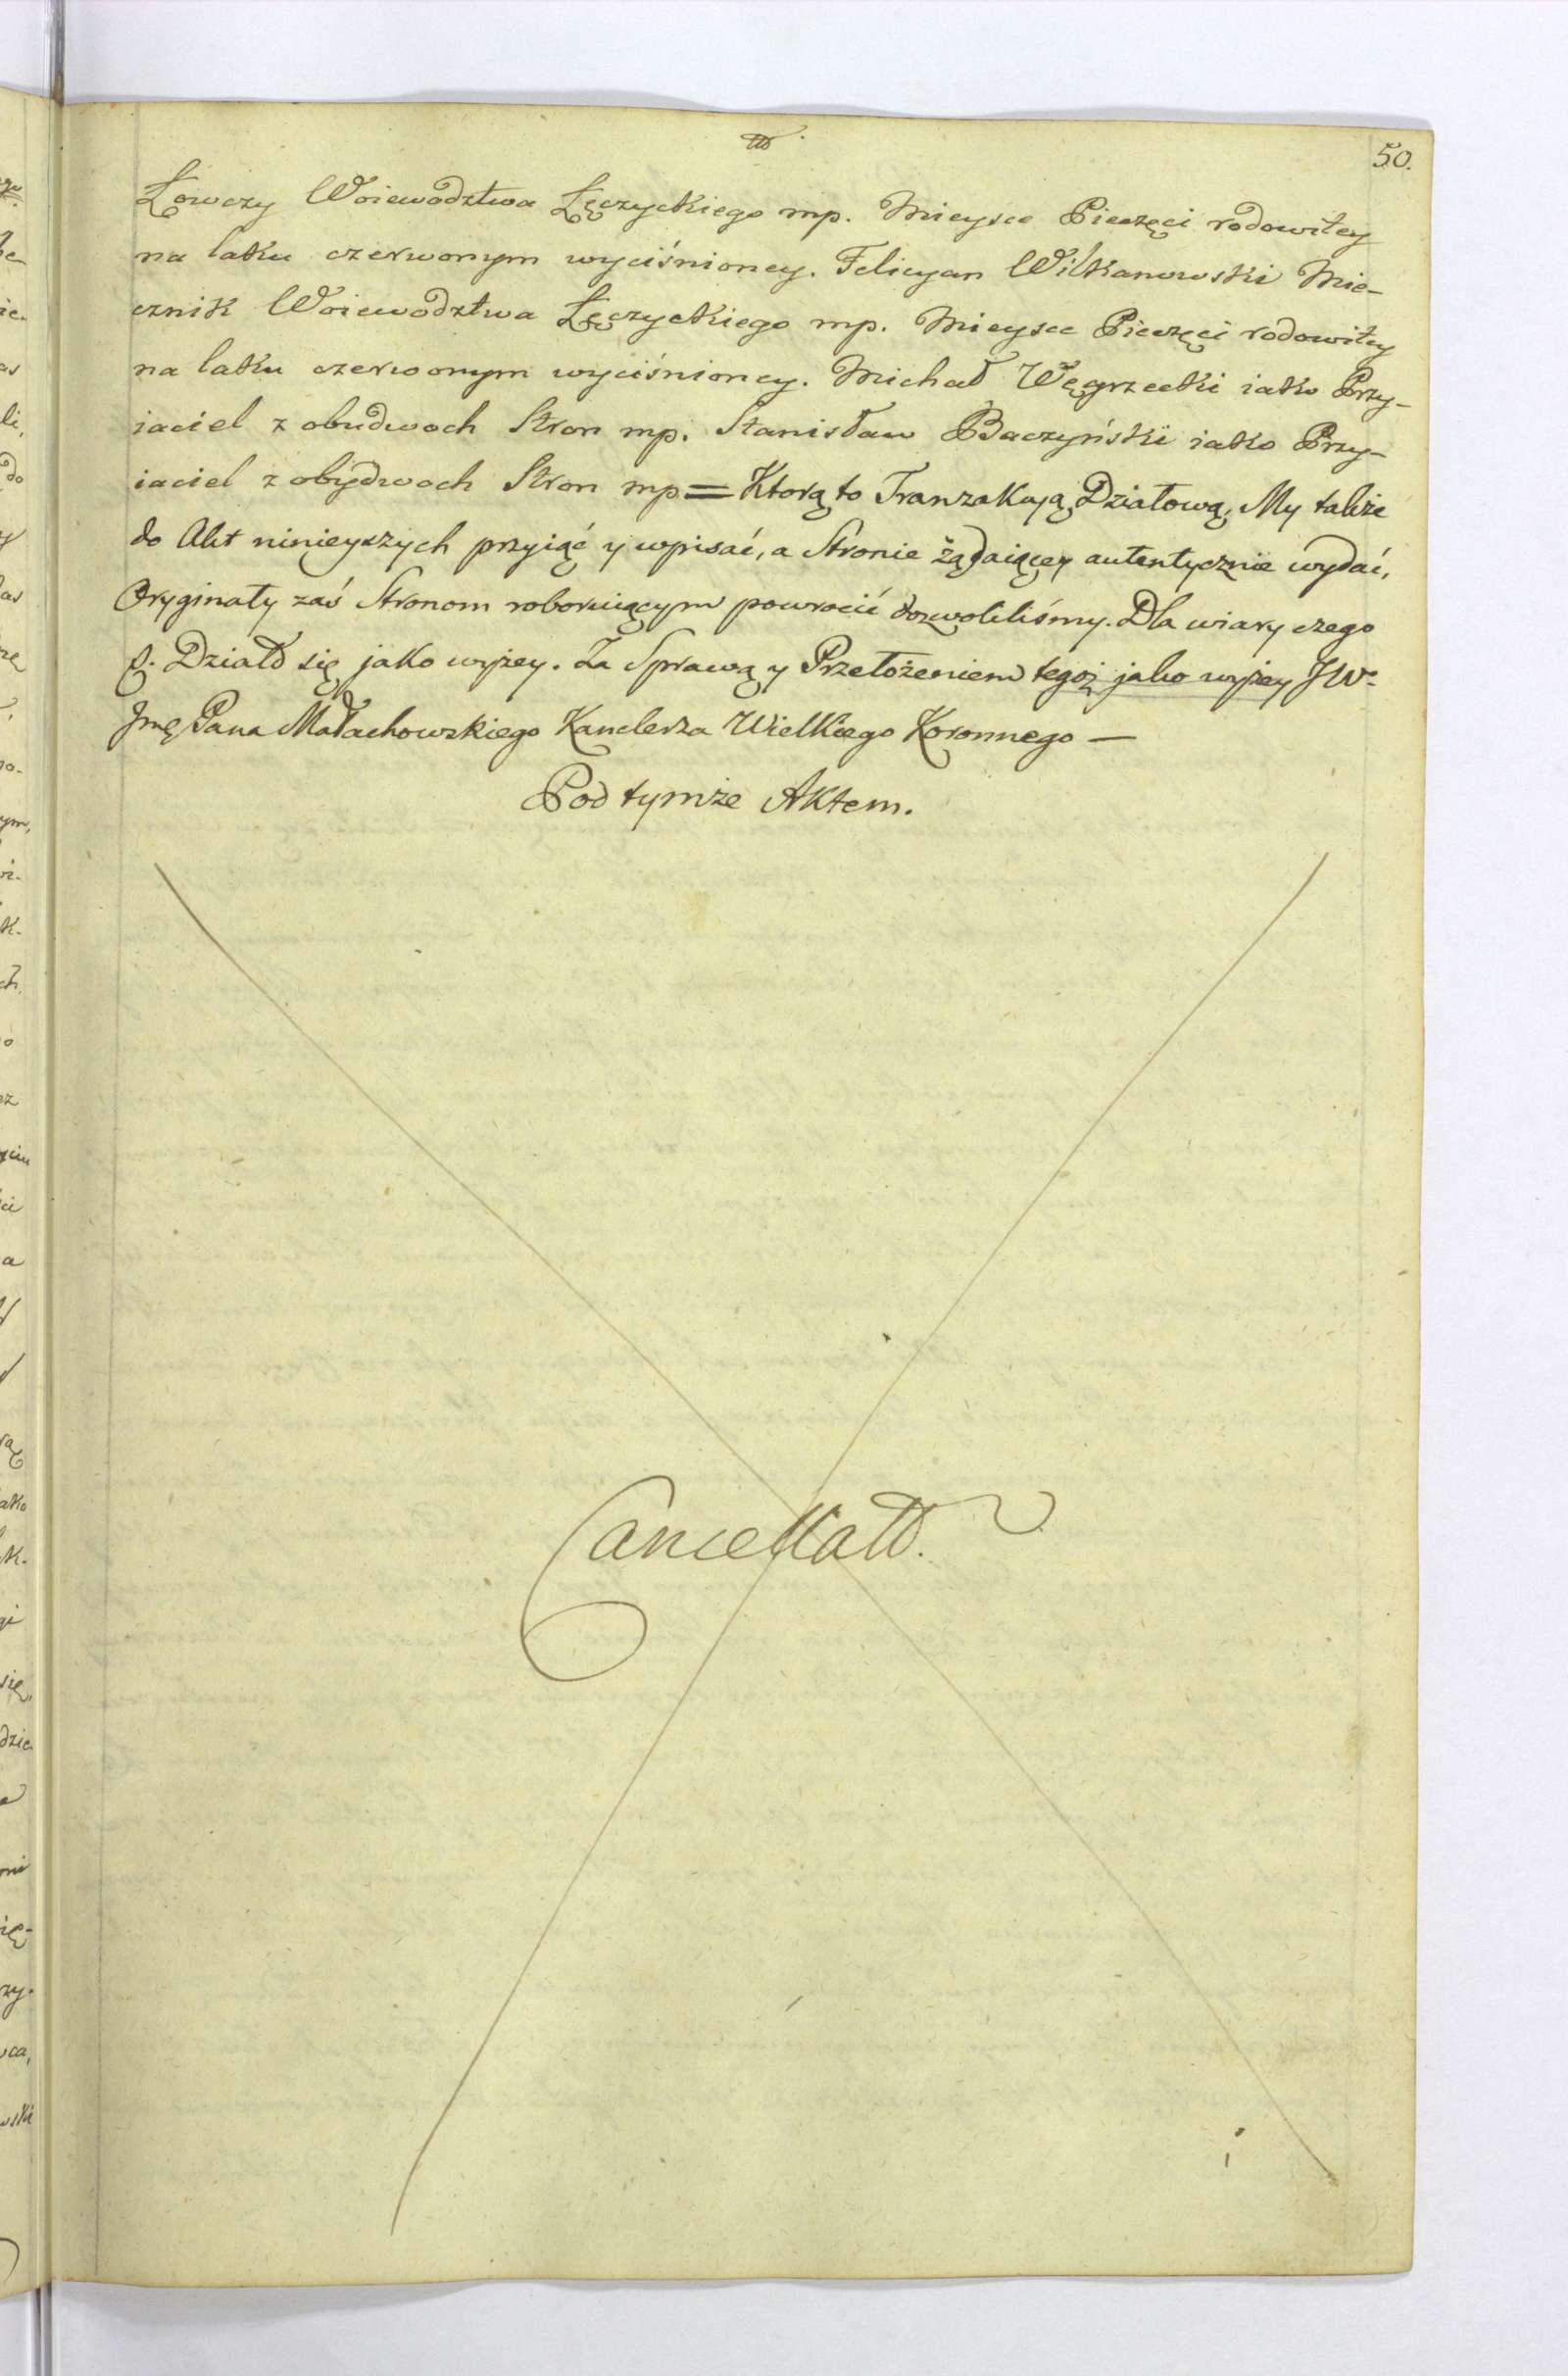 50.
Łowczy Woiewodztwa Łęczyckiego mp. Mieysce Pieczęci rodowitey
na laku czerwonym wyciśnioney. Felicyan Wilkanowski Mie-
cznik Woiewodztwa Łęczyckiego mp. Mieysce Pieczęci rodowitey
na laku czerwonym wyciśnioney. Michał Węgrzecki iako Przy-
iaciel z obudwoch Stron mp. Stanisław Baczyński iako Przy-
iaciel z obydwoch Stron mp = Ktorą to Tranzakcyą Działową, My także
do Akt ninieyszych przyiąć y wpisać, a Stronie żądaiącey autentycznie wydać,
Oryginały zaś Stronom roboruiącym powrocić dozwoliliśmy. Dla wiary czego
Działo się jako wyżey. Za Sprawą y Przełożeniem tegoż jako wyżey JW.
Jmę Pana Małachowskiego Kanclerza Wielkiego Koronnego —
Pod tymże Aktem.